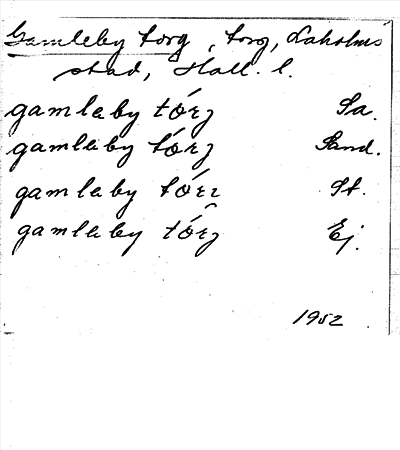 Gamleby torg, torg, Laholms
stad, Hall. l.
gamleby tórʒ Sa.
gamleby tórʒ Sand.
gamleby tórɪ St.
gamleby tórʒ Ej.
1952